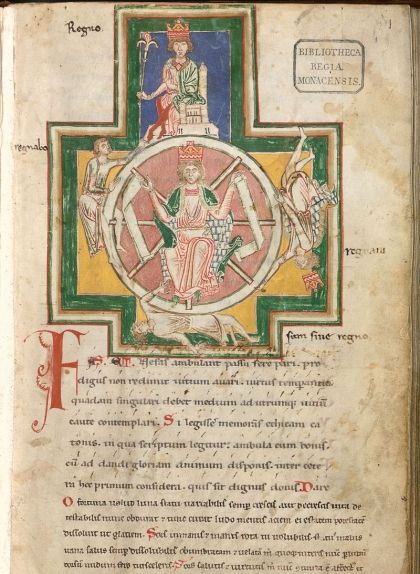 Regno.
BIBLIOTHECA
REGIA
MONACENSIS.
regnabo
regnaui
sum sine regno.
FAS ET nefas ambulant passu fere pari. pro
digus non redimit uitium auari. uirtus temperantia
quadam singulari debet medium ad utrumque uitium
caute contemplari. Si legisse memoras ethicam ca
tonis. in qua scriptum legitur: ambula cum bonis.
cū ad dandi gloriam animum disponis. inter cete
ra hoc primum considera. quis sit dignus donis. Dare
O fortuna uelut luna statu uariabilis semper crescis aut decrescis uita de
testabilis nunc obdurat et tunc curat ludo mentis aciem egestatem potestatem
dissoluit ut glaciem. Sors immanis et inanis rota tu uolubilis status malus
uana salus semper dissolubilis obumbratam et uelatam m quoque niteris nunc
dorsum nudum fero tui sceleris. Sors salutis et uirtutis m nunc